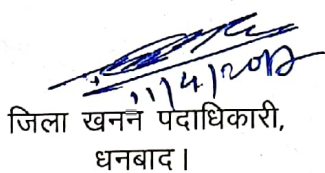 11/4/2012
जिला खनन पदाधिकारी,
धनबाद।